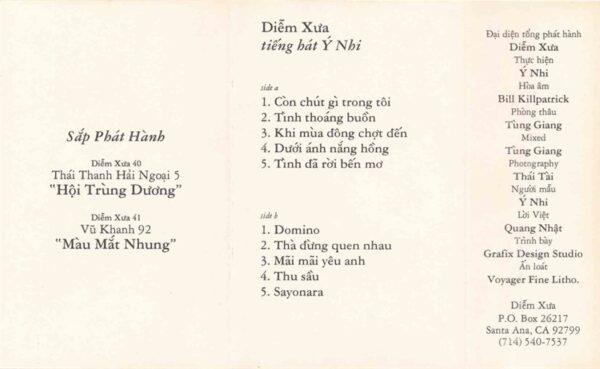 Sắp Phát Hành
Diễm Xưa 40
Thái Thanh Hải Ngoại 5
"Hội Trùng Dương"
Diễm Xưa 41
Vũ Khanh 92
"Màu Mắt Nhung"
Diễm Xưa
tiếng hát Ý Nhi
side a
1. Còn chút gì trong tôi
2. Tình thoáng buồn
3. Khi mùa đông chợt đến
4. Dưới ánh nắng hồng
5. Tình đã rời bến mơ
side b
1. Domino
2. Thà đừng quen nhau
3. Mãi mãi yêu anh
4. Thu sầu
5. Sayonara
Đại diện tổng phát hành
Diễm Xưa
Thực hiện
Ý Nhi
Hòa âm
Bill Killpatrick
Phòng thâu
Tùng Giang
Mixed
Tùng Giang
Photography
Thái Tài
Người mẫu
Ý Nhi
Lời Việt
Quang Nhật
Trình bày
Grafix Design Studio
Ấn loát
Voyager Fine Litho.
Diễm Xưa
P.O. Box 26217
Santa Ana, CA 92799
(714) 540-7537